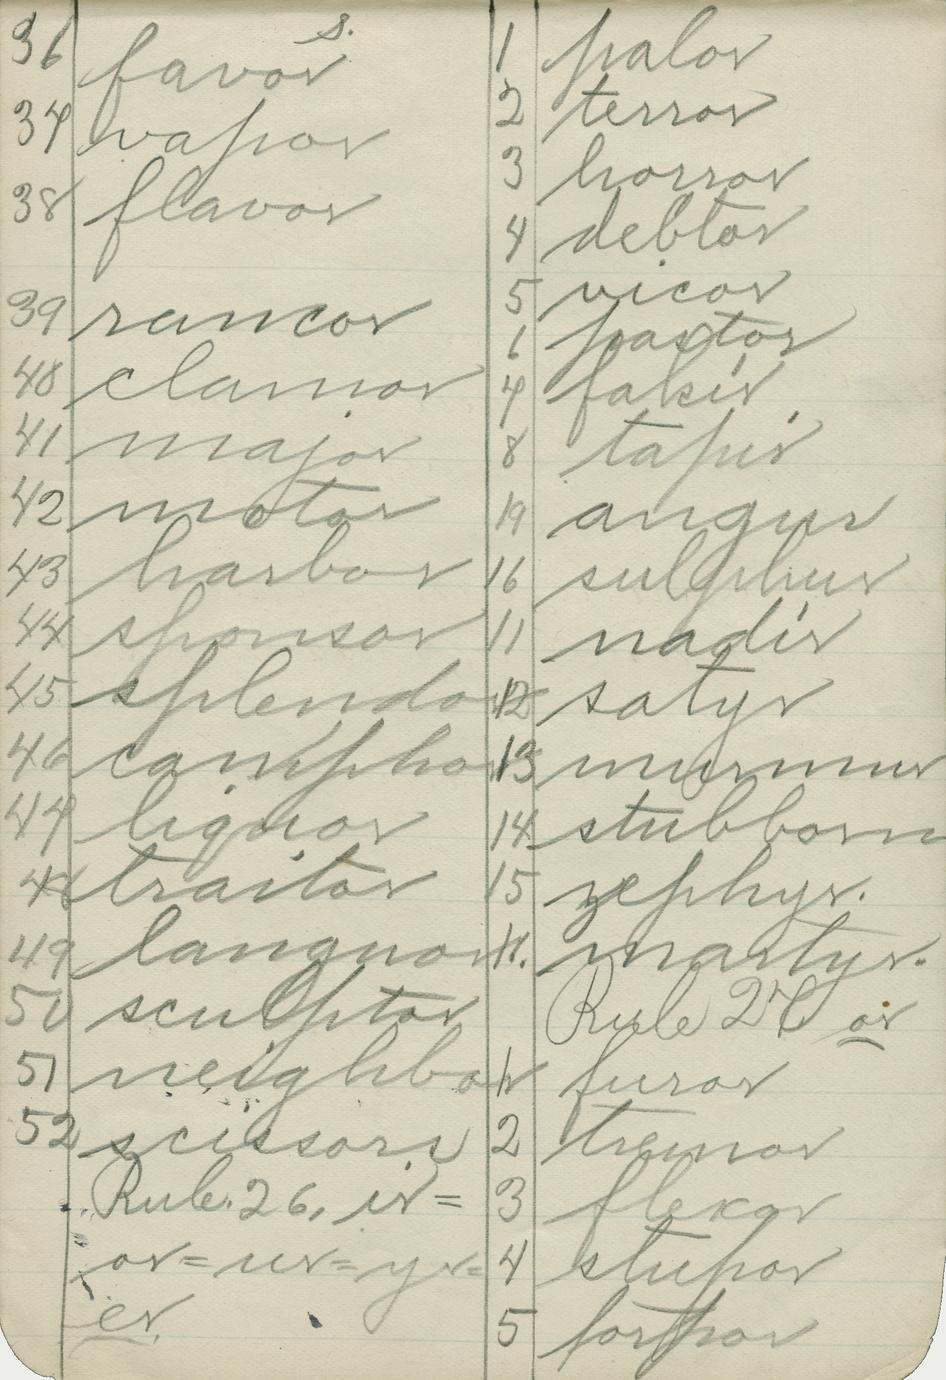 s.
36 favor
37 vapor
38 flavor
39 rancor
40 clamor
41 major
42 motor
43 harbor
44 sponsor
45 splendo
46 campho
47 liquor
48 traitor
49 languor
50 sculptor
51 neighbor
52 scissors
Rule. 26, ir =
or = ur = yr =
er.
1 palor
2 terror
3 horror
4 debtor
5 vicor
6 pastor
7 fakir
8 tapir
19 angur
16 sulphur
11 nadir
12 satyr
13 murmur
14 stubborn
15 zephyr.
martyr.
Rule 27 or
1 furor
2 tremor
3 flexor
4 stupor
5